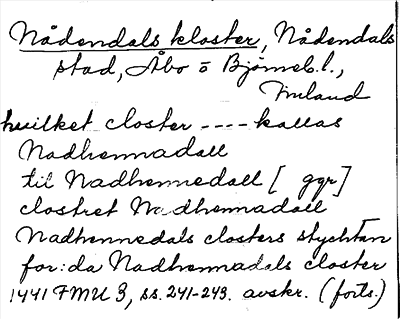 Nådendals kloster, Nådendals
stad, Åbo o Björneb. l.,
Finland
hwilket closter ---- kallas
Nadhennadall
til Nadhennedall [ ggr]
clostret Nadhennadall
Nadhennedals closters stychtan
for:da Nadhennadals closter
1441 FMU 3, ss. 241-243. avskr. (forts.)